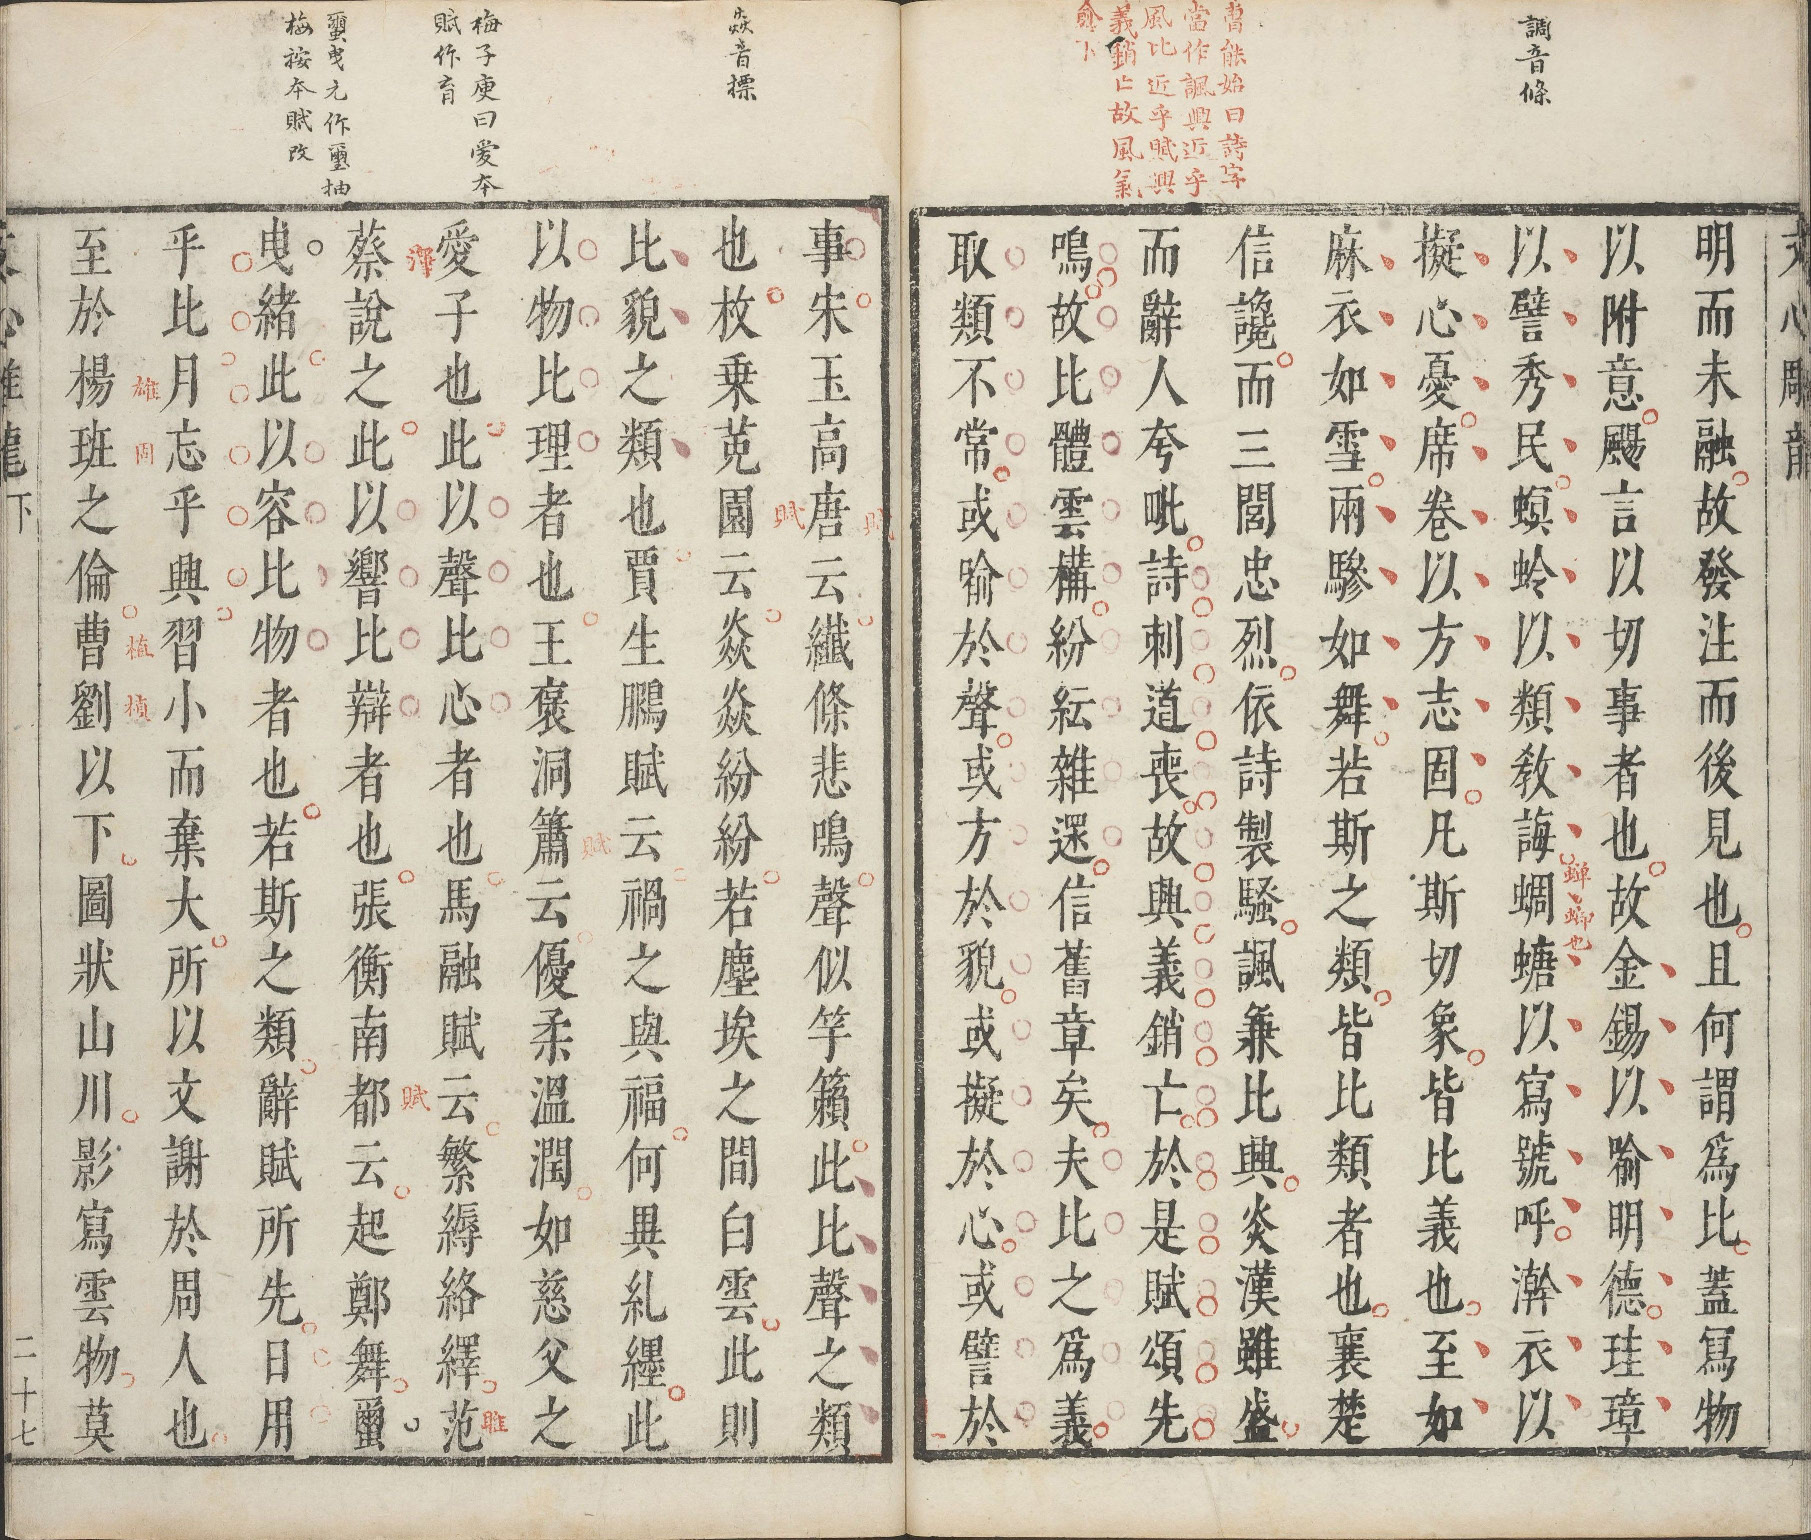 調音條
曹能始曰詩字
當作諷興近乎
風比近乎賦興
義銷亡故風氣
愈下
文心雕龍
明而未融故發注而後見也且何謂爲比蓋寫物
以附意颺言以切事者也故金錫以喻明德珪璋
以譬秀民螟蛉以類敎誨蜩螗以寫號呼澣衣以
蟬蜩也
擬心憂席卷以方志固凡斯切象皆比義也至如
麻衣如雪兩驂如舞若斯之類皆比類者也襄楚
信讒而三閭忠烈依詩製騷諷兼比興炎漢雖盛
而辭人夸毗詩刺道喪故興義銷亡於是賦頌先
鳴故比體雲構紛紜雜遝信舊章矣夫比之爲義
取類不常或喻於聲或方於貌或擬於心或譬於
猋音摽
梅子庾曰愛本
賦作育
蠒曳元作壐抽
梅按本賦改
事宋玉高唐云纖條悲鳴聲似竽籟此比聲之類
賦
也枚乗莵園云猋猋紛紛若塵埃之間白雲此則
賦
比貌之類也賈生鵬賦云禍之與福何異糺纆此
以物比理者也王襃洞簫云優柔溫潤如慈父之
賦
愛子也此以聲比心者也馬融賦云繁縟絡繹范
雎
蔡說之此以響比辯者也張衡南都云起鄭舞蠒
澤
賦
曳緒此以容比物者也若斯之類辭賦所先日用
乎比月忘乎興習小而棄大所以文謝於周人也
至於楊班之倫曹劉以下圖狀山川影寫雲物莫
雄
固
植
楨
文心雕龍下
二十七